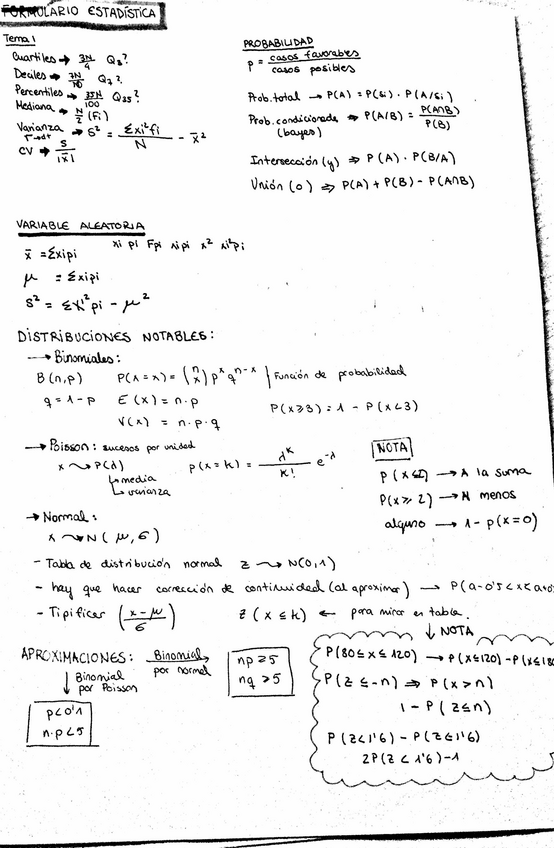 FORMULARIO ESTADÍSTICA
Tema 1
Cuartiles → 3N/4 Q3?
Deciles → 7N/10 Q7?
Percentiles → 35N/100 Q35?
Mediana → N/2 (Fi)
Varianza → S² = Σxi²fi / N - x̄²
CV → S/|x̄|
PROBABILIDAD
p = casos favorables / casos posibles
Prob. total → P(A) = P(Bi) · P(A/Bi)
Prob. condicionada → P(A/B) = P(A∩B) / P(B)
(bayes)
Intersección (y) ⇒ P(A) · P(B/A)
Unión (o) ⇒ P(A) + P(B) - P(A∩B)
VARIABLE ALEATORIA
xi pi Fpi xipi x² xi²pi
x̄ = Σxipi
μ = Σxipi
S² = Σxi²pi - μ²
DISTRIBUCIONES NOTABLES:
→ Binomiales:
B(n,p) P(x=x) = (n x) p^x q^(n-x) | Función de probabilidad
q = 1-p E(x) = n·p P(x≥3) = 1 - P(x<3)
V(x) = n·p·q
→ Poisson: sucesos por unidad
x ⤳ P(λ) p(x=k) = λ^k / k! e^-λ
↳ media
↳ varianza
NOTA
→ A la suma
P(x≥2) → Al menos
alguno → 1-p(x=0)
→ Normal:
x ⤳ N(μ,σ)
- Tabla de distribución normal z ⤳ N(0,1)
- hay que hacer corrección de continuidad (al aproximar) → P(a-0'5<x<a+0
- Tipificar (x-μ / σ) z(x≤k) ← para mirar en tabla.
↓ NOTA
P(80≤x≤120) → P(x≤120)-P(x≤80
P(z≤-n) ⇒ P(x>n)
1 - P(z≤n)
P(z<1'6) - P(z≤1'6)
2P(z<1'6)-1
APROXIMACIONES: Binomial por normal →
np≥5
nq>5
↓ Binomial
por Poisson
p<0'1
n·p<5